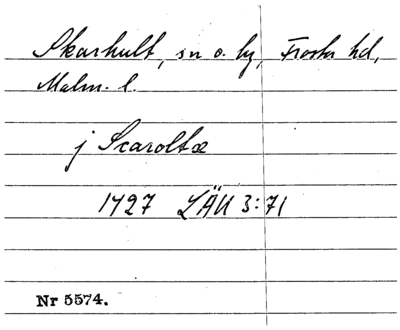 Skarhult, sn o. by, Frosta hd,
Malm. l.
j Scaroltæ
1427 LÄU 3:71
Nr 5574.